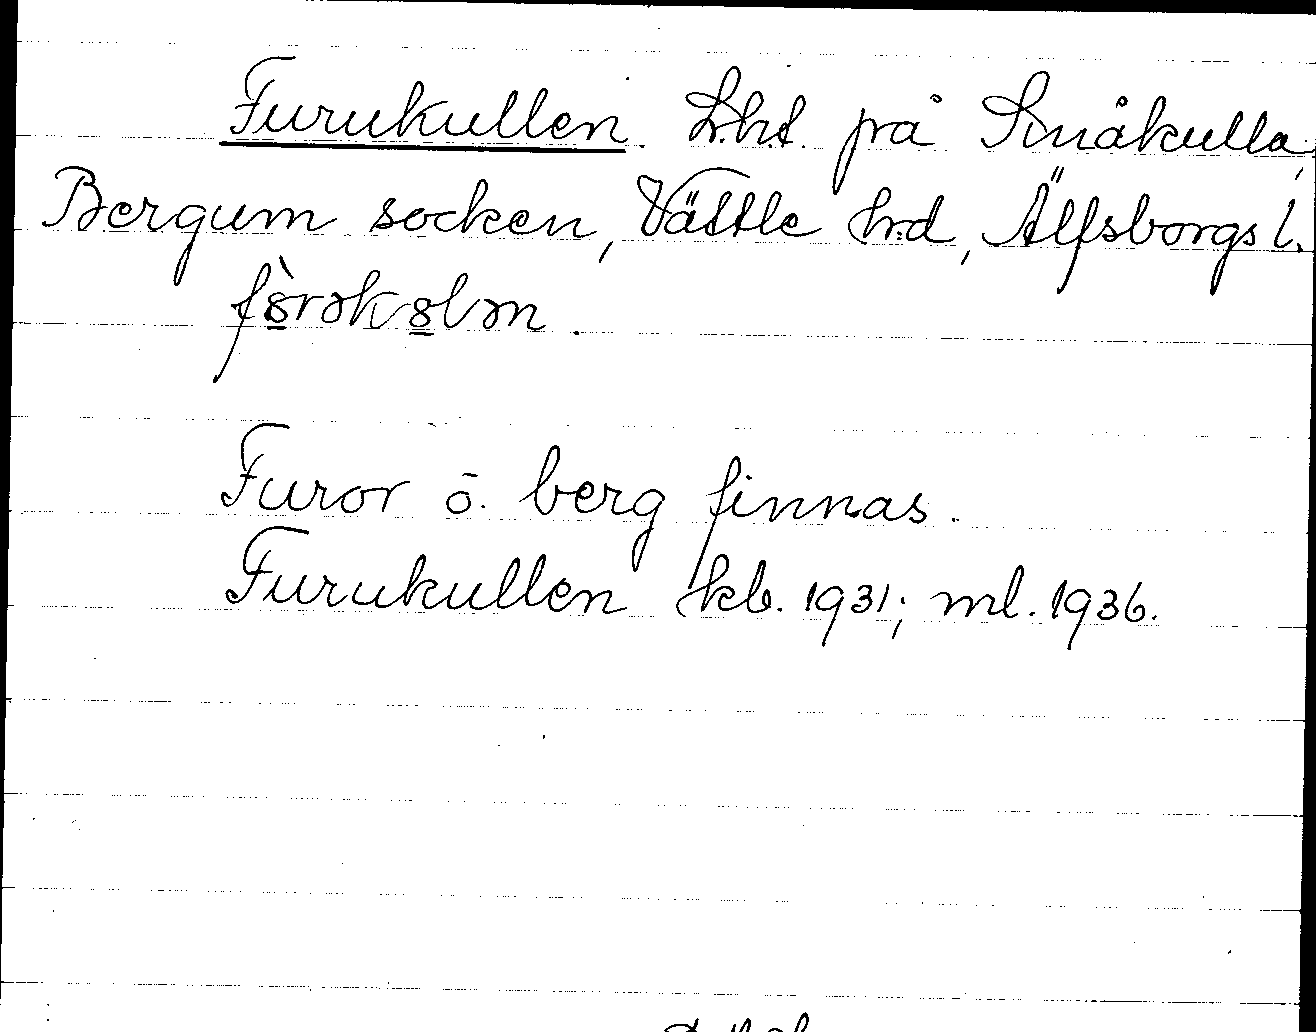 Furukullen. Lht. på Småkulla,
Bergum socken, Vättle hd, Älfsborgs l.
Furor o. berg finnas.
Furukullen kb. 1931; ml. 1936.